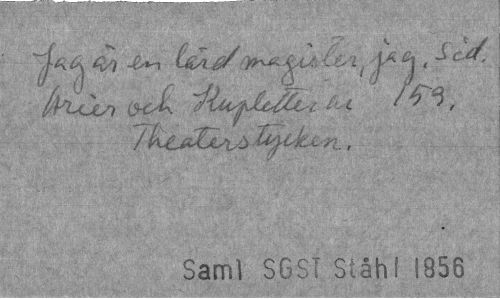 Jag är en lärd magister, jag. Sid.
Arier och Kupletter ur 159.
Theaterstycken.
Saml SGST Ståhl 1856